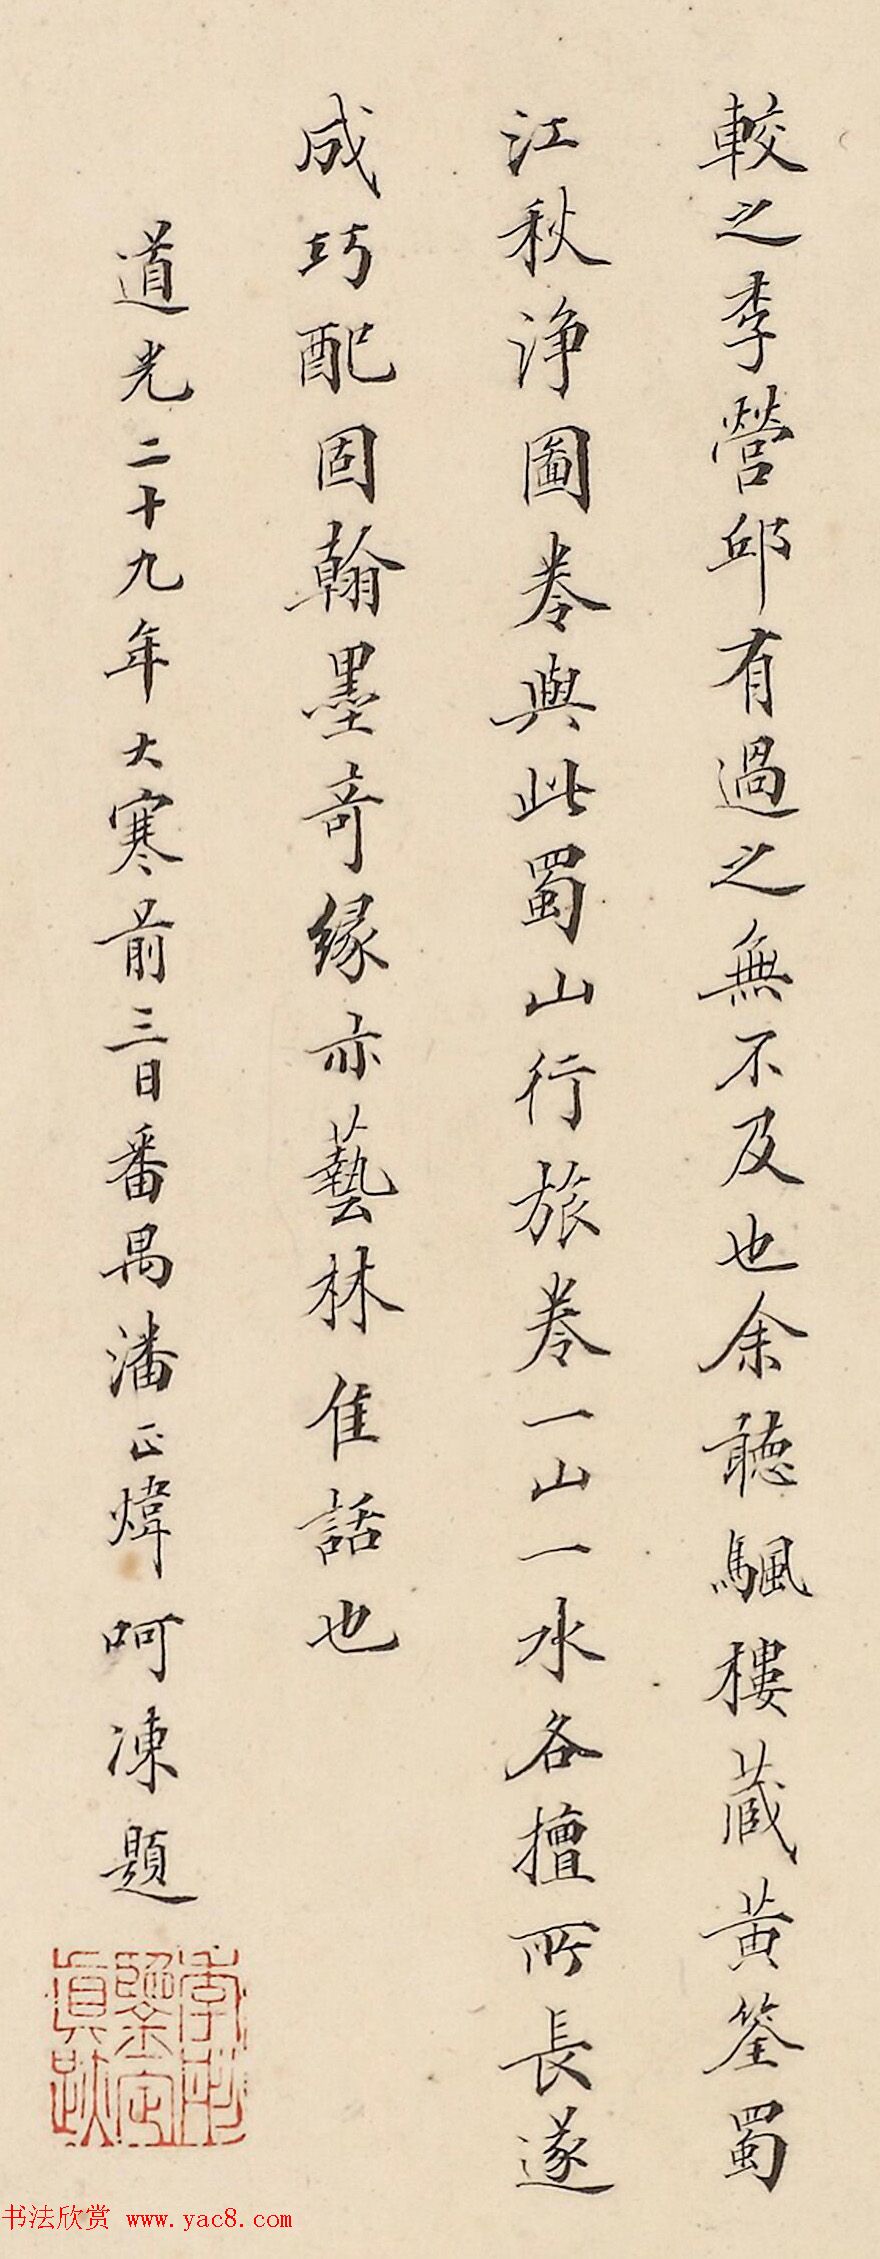 較之李營邱有過之無不及也余聽颿樓藏黃筌蜀
江秋淨圖卷與此蜀山行旅卷一山一水各擅所長遂
成巧配固翰墨奇緣亦藝林佳話也
道光二十九年大寒前三日番禺潘正煒呵凍題
季彤鑒定真跡
书法欣赏 www.yac8.com